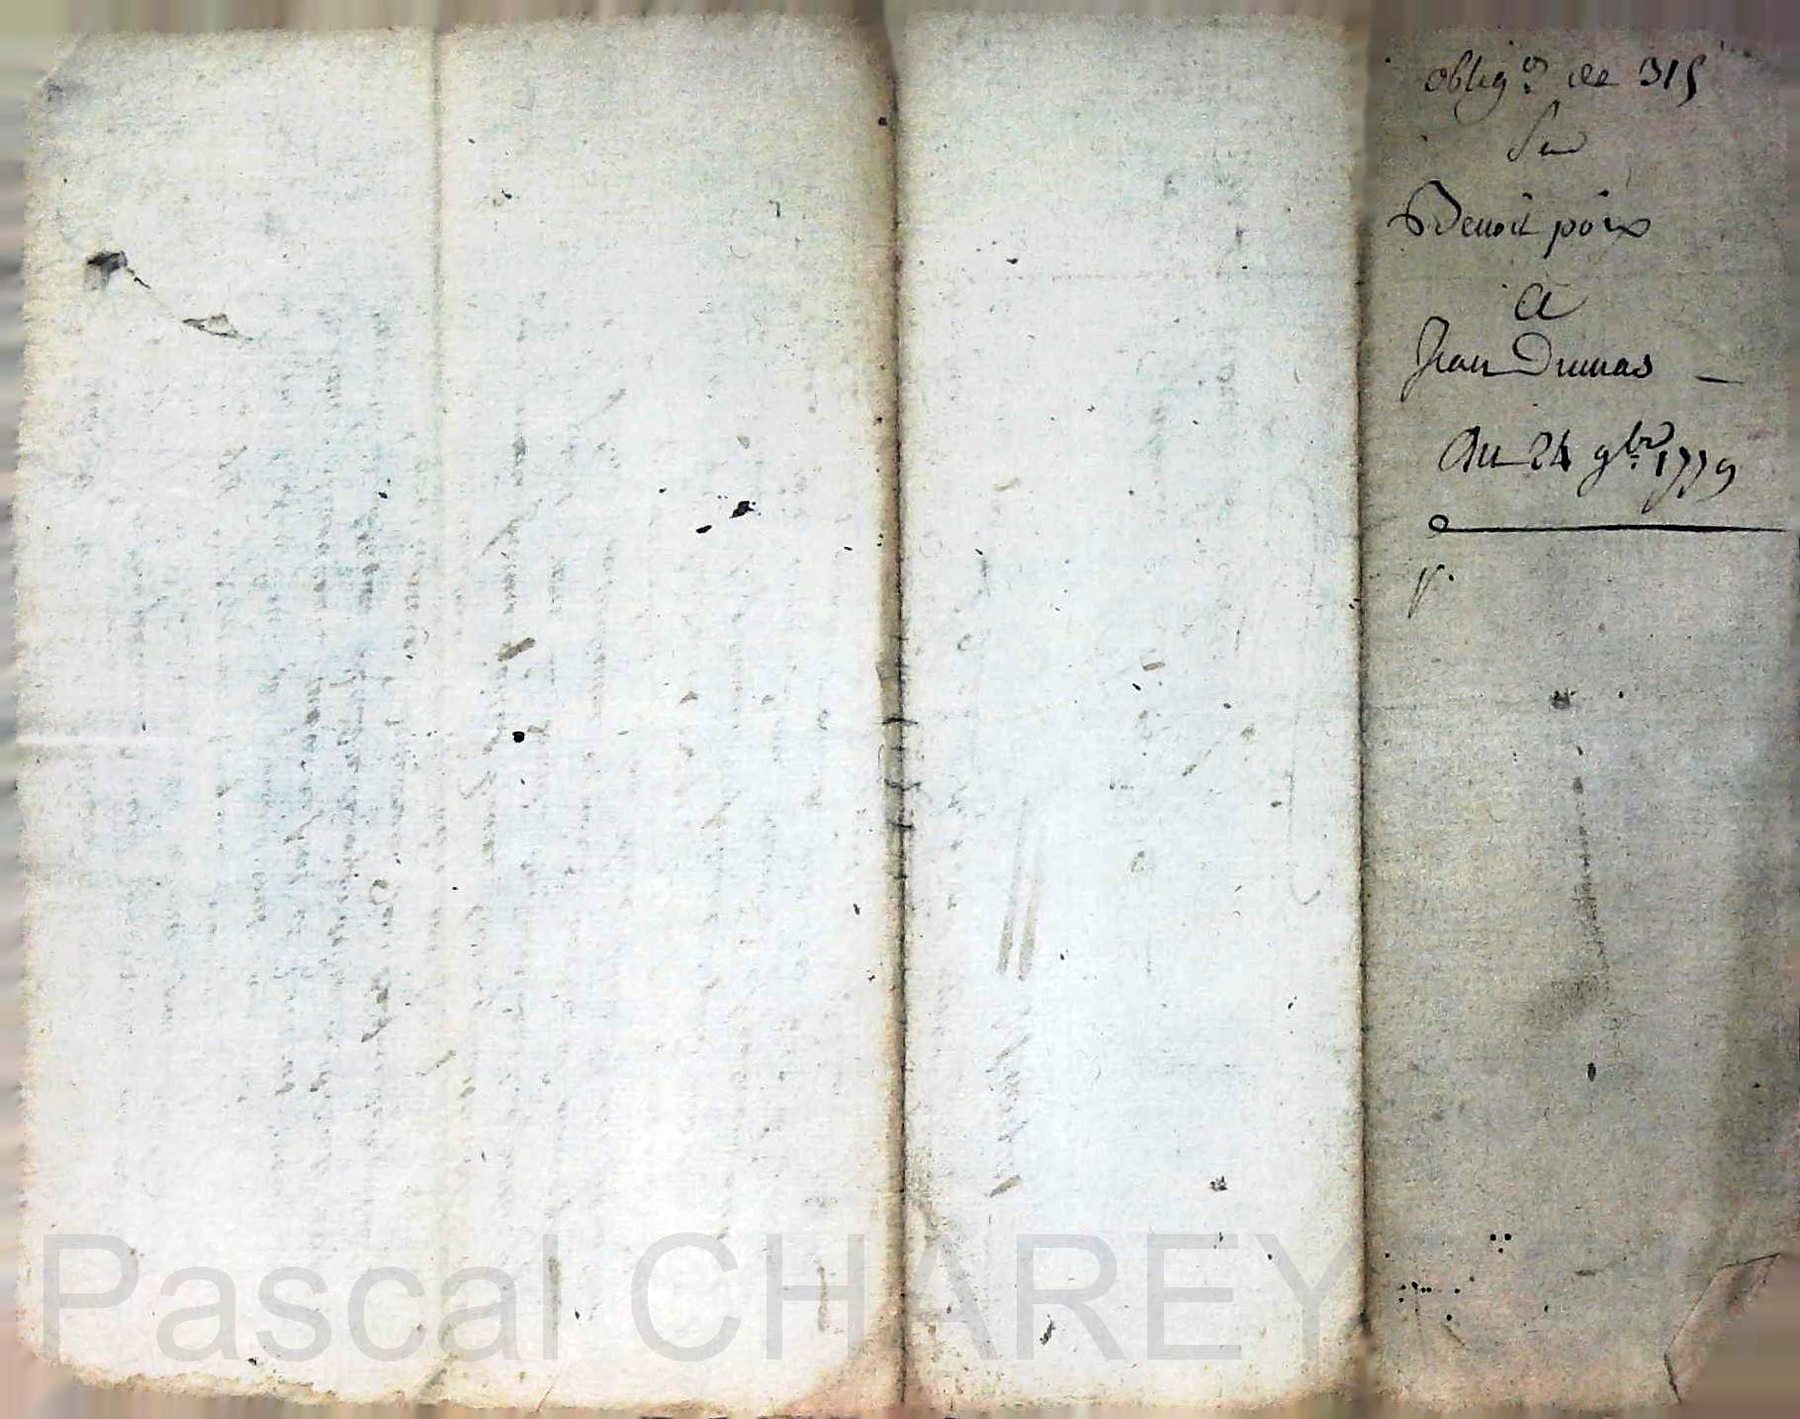 oblig.on de 315
Benoit poix
a
Jean Dumas —
Du 24 9bre 1779
Pascal CHAREY